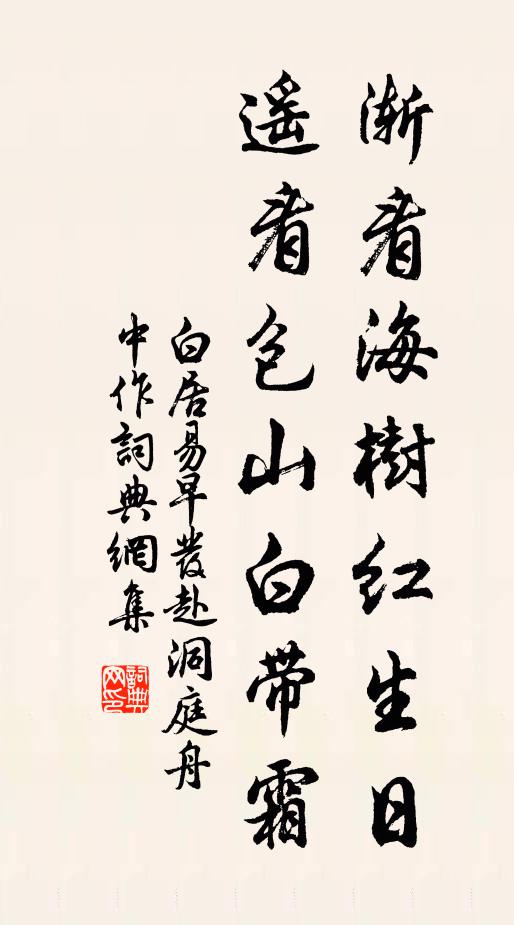 漸看海樹紅生日
遥看包山白帶霜
白居易早發赴洞庭舟
中作詞典網集
詞典網印